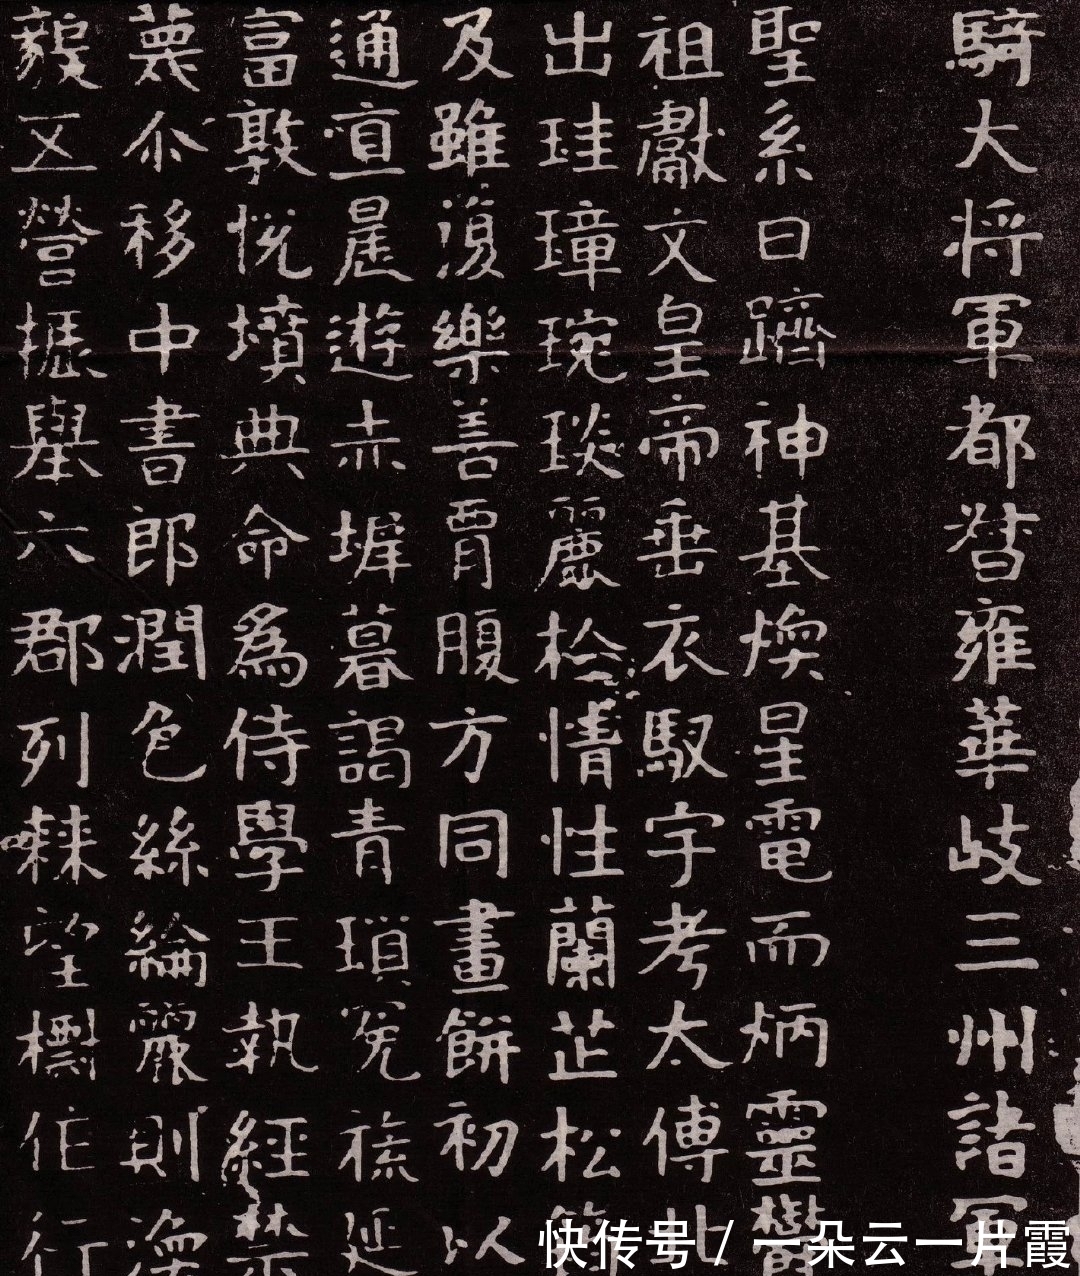 騎大将軍都督雍華岐三州諸軍
聖系曰躋神基煥星電而炳靈鬱
祖獻文皇帝垂衣馭宇考太傅北
出珪璋琬琰麗於情性蘭芷松筠
及雖復樂善胥腹方同畫餅初以
通直晨遊赤墀暮謁青瑣冕祿延
富敦悦墳典命為侍學王執經禁
業尒移中書郎潤色絲綸麗則渙
毅五營振舉六郡列棘望樹作行
快传号 / 一朵云一片霞